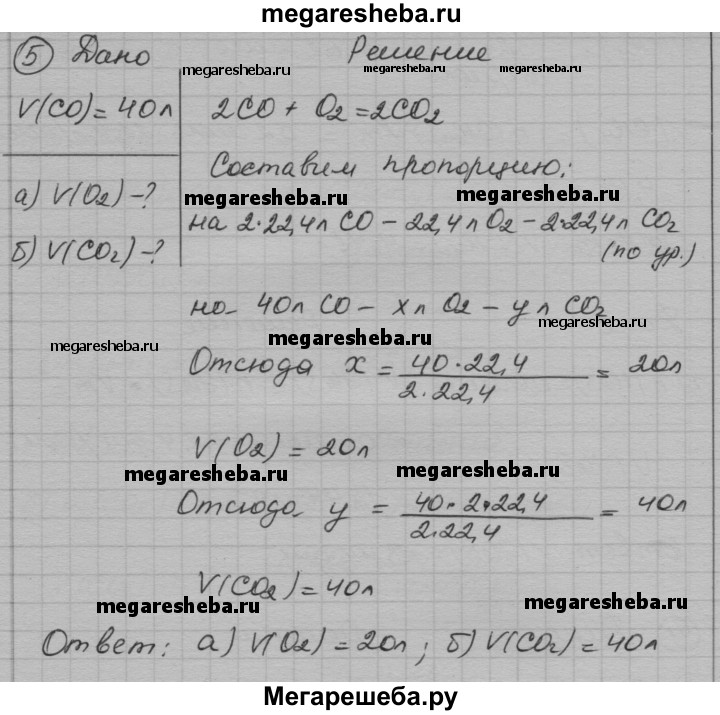 megaresheba.ru
5 Дано Решение
megaresheba.ru megaresheba.ru megaresheba.ru
V(CO)=40л 2CO + O2=2CO2
Составим пропорцию:
а) V(O2)-? megaresheba.ru megaresheba.ru
на 2·22,4л CO - 22,4л O2 - 2·22,4л CO2
б) V(CO2)-? (по ур.)
на 40л CO - x л O2 - y л CO2
megaresheba.ru
megaresheba.ru megaresheba.ru
Отсюда x = 40·22,4 / 2·22,4 = 20л
V(O2) = 20л
megaresheba.ru megaresheba.ru
Отсюда y = 40·2·22,4 / 2·22,4 = 40л
V(CO2)=40л
megaresheba.ru megaresheba.ru
Ответ: а) V(O2)=20л; б) V(CO2)=40л
Мегарешеба.ру